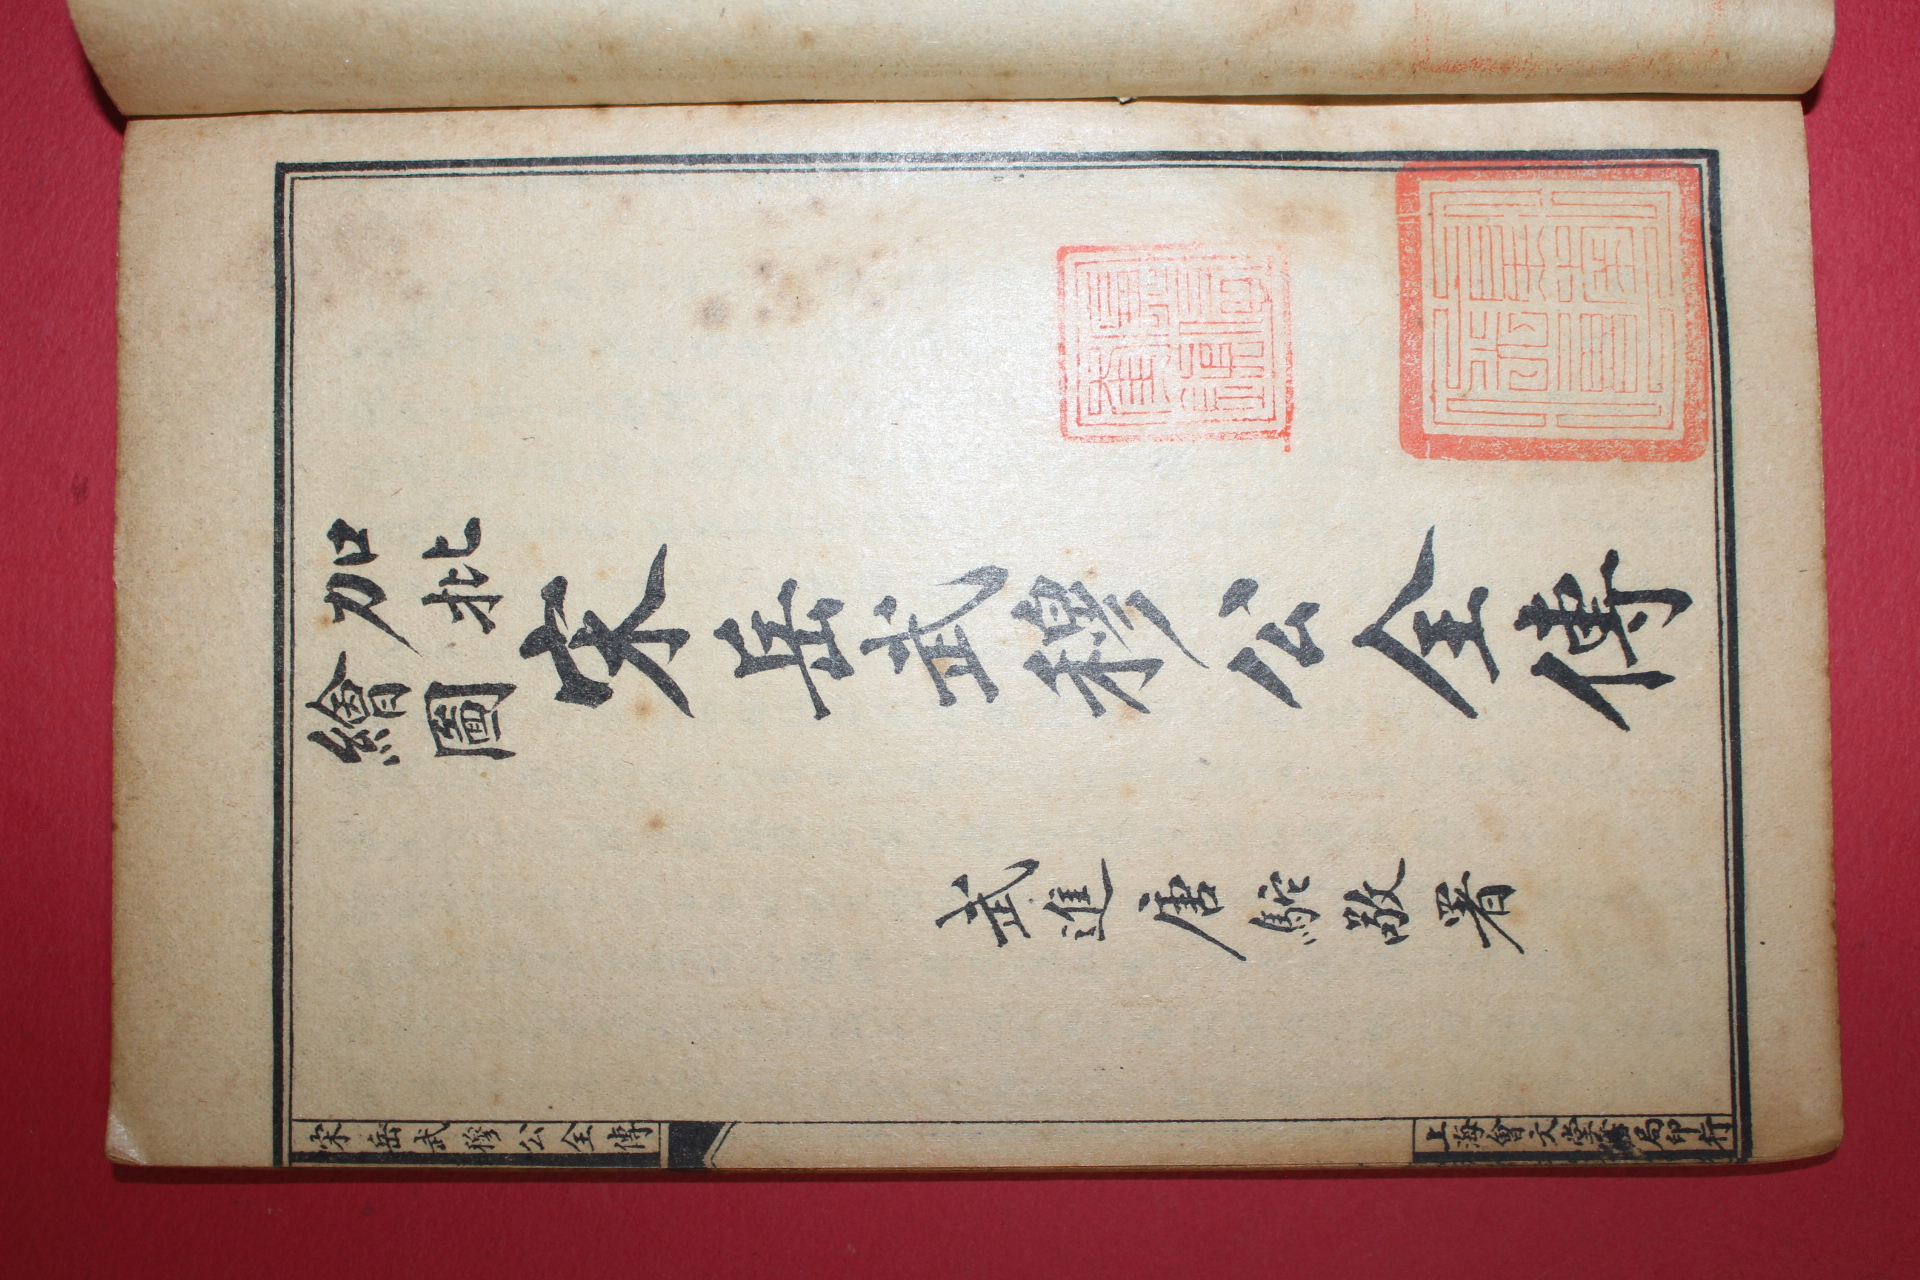 加批
繪圖
宋岳武穆公全傳
武進唐駝敬署
宋岳武穆公全傳
上海會文堂書局印行